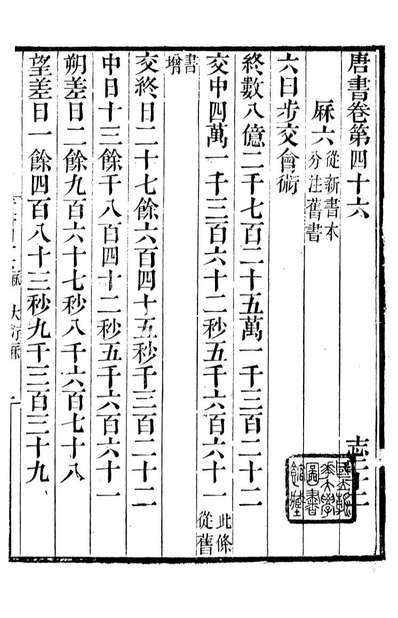 唐書卷第四十六
志二十二
厤六從新書本分注舊書
六曰步交會術
終數八億二千七百二十五萬一千三百二十二
交中四萬一千三百六十二秒五千六百六十一此條從舊
書增
交終日二十七餘六百四十五秒千三百二十二
中日十三餘千八百四十二秒五千六百六十一
朔差日二餘九百六十七秒八千六百七十八
望差日一餘四百八十三秒九千三百三十九
大衍厤